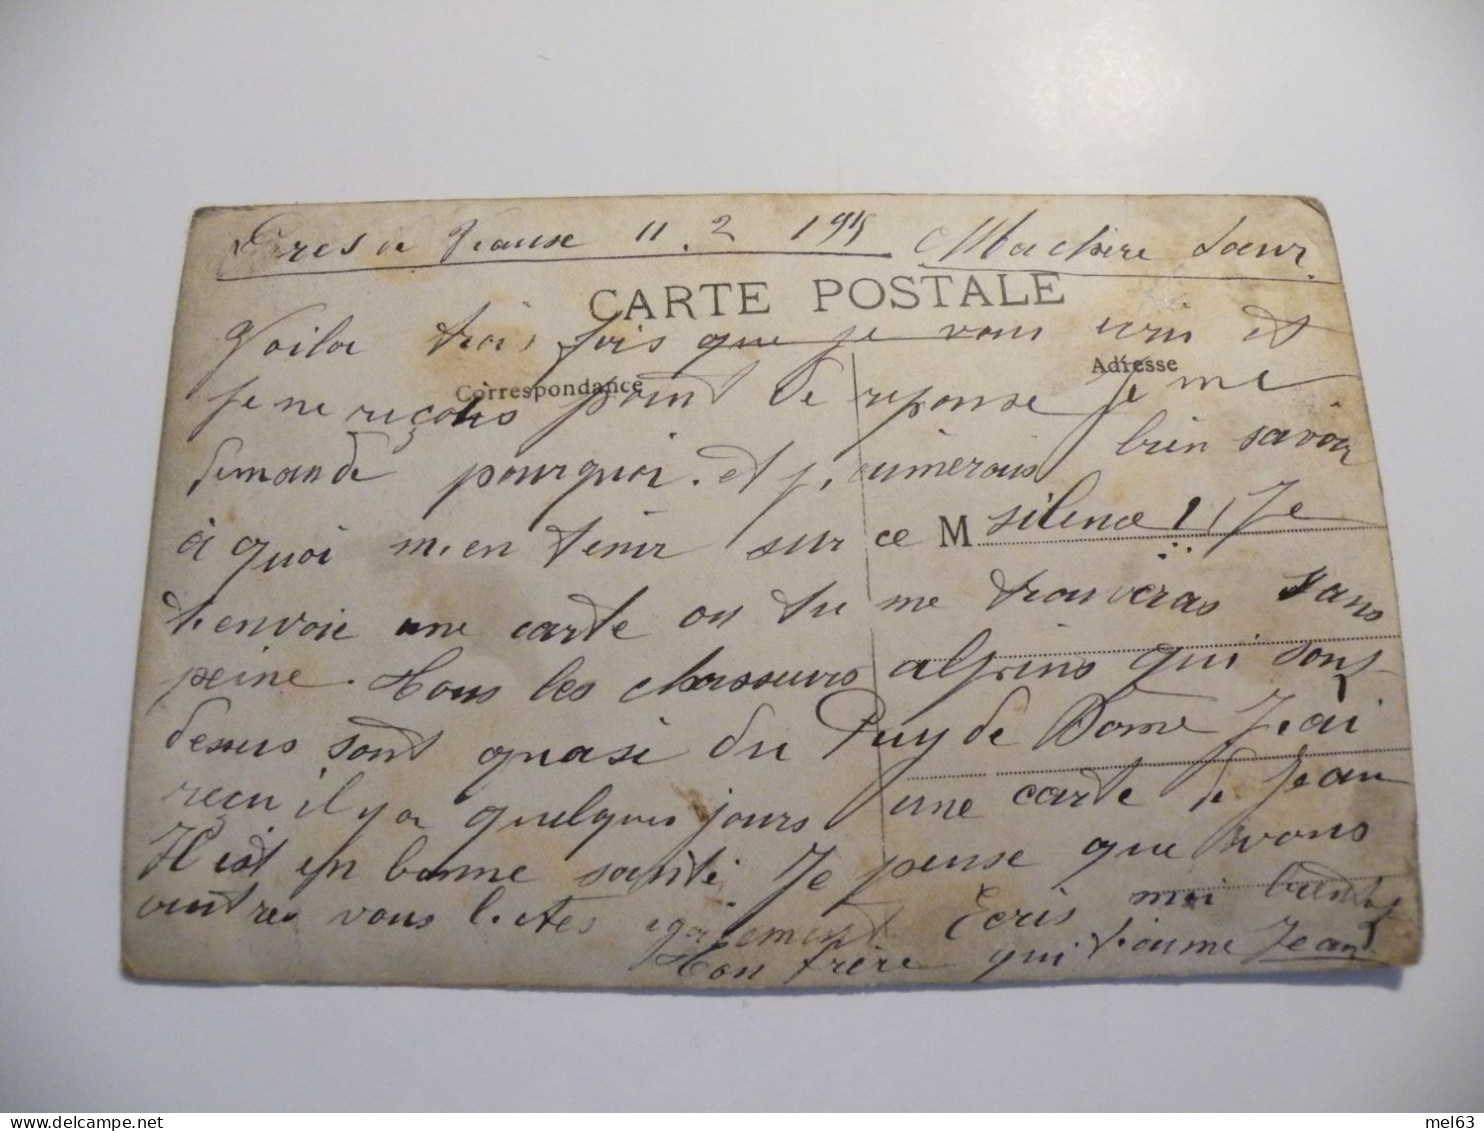 11. 2 1915 Ma chère Sœur
CARTE POSTALE
Voila trois fois que je vous ecris et
Correspondance
Adresse
Je ne reçois point de reponse Je me
demande pourquoi. et j'aimerais bien savoir
à quoi m'en tenir sur ce M silence !! Je
t'envoie une carte ou tu me trouveras sans
peine. Tous les chasseurs alpins qui sont
dessus sont quasi du Puy de Dome J'ai
reçu il y a quelques jours une carte de Jean
Il est en bonne santé Je pense que vous
autres vous l'etes egalement Ecris moi bientot
Ton frère qui t'aime Jean
mel63